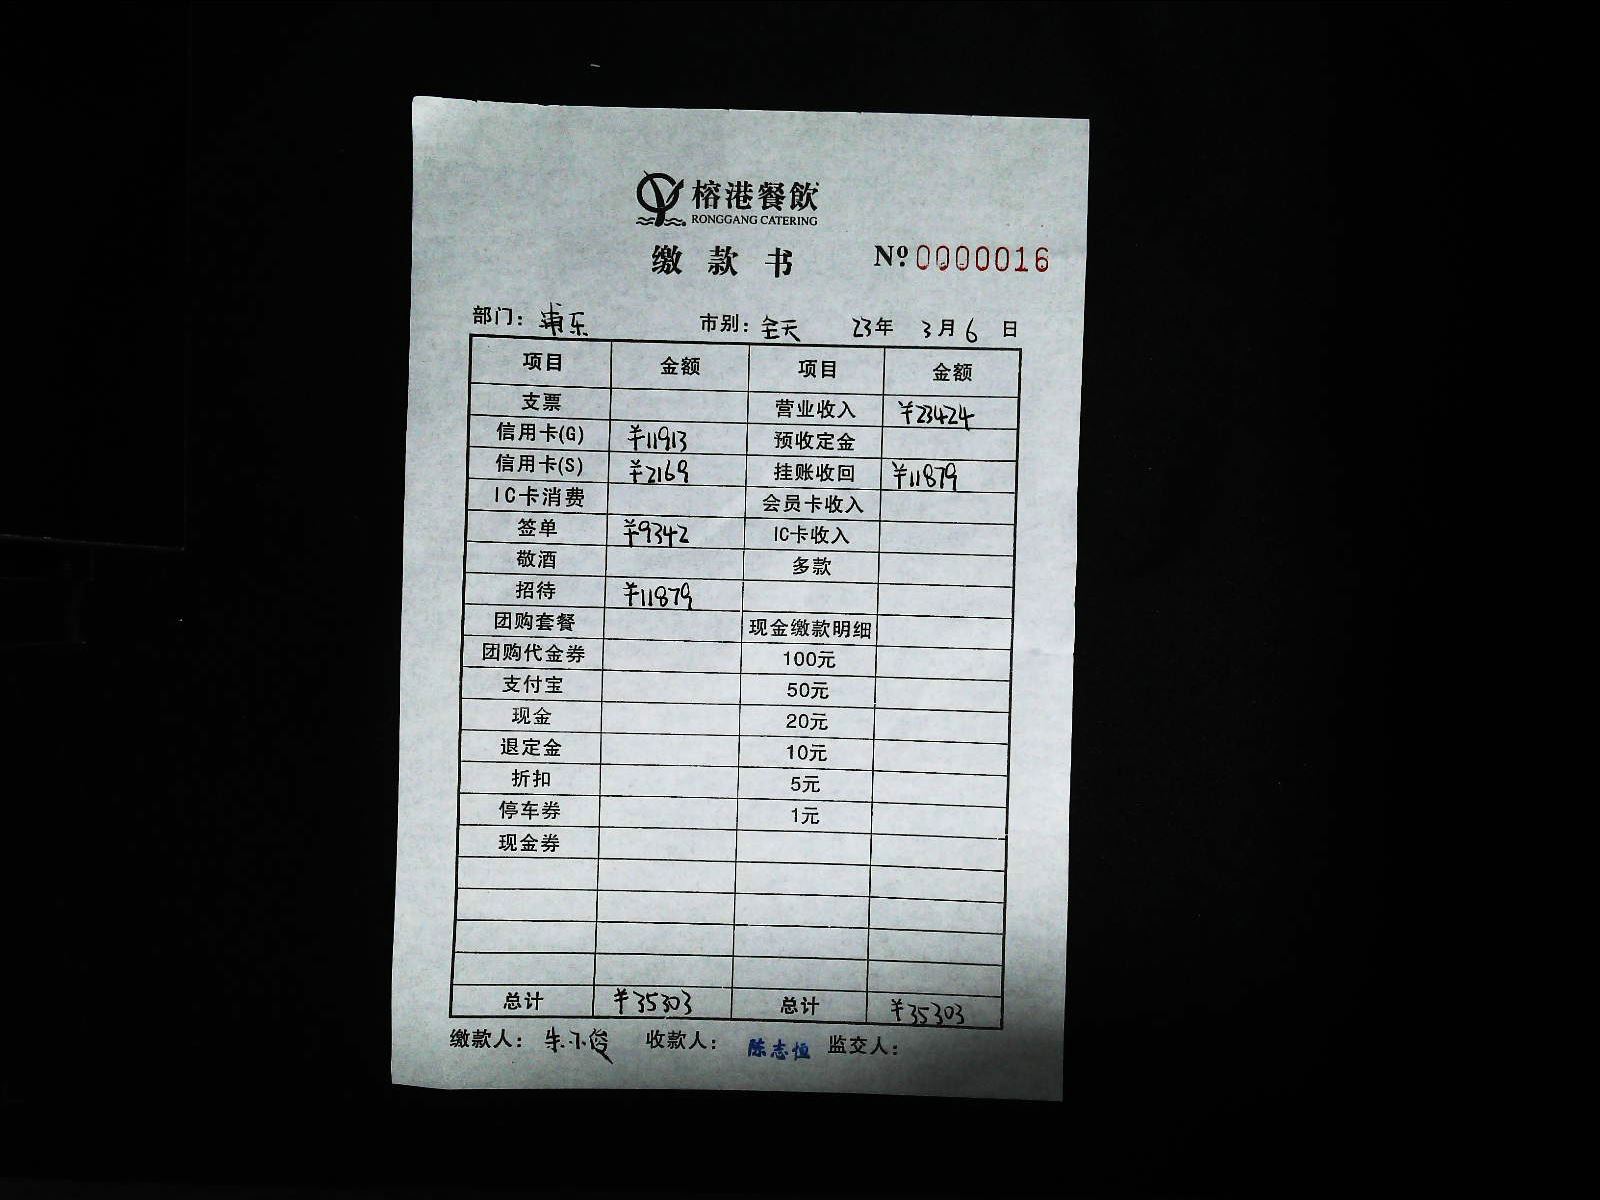 榕港餐飲
RONGGANG CATERING
缴款书 Nº 0000016
部门：浦东 市别：全天 23年 3月6日
项目 金额 项目 金额
支票 营业收入 ¥23424
信用卡(G) ¥11913 预收定金
信用卡(S) ¥2169 挂账收回 ¥11879
IC卡消费 会员卡收入
签单 ¥9342 IC卡收入
敬酒 多款
招待 ¥11879
团购套餐 现金缴款明细
团购代金券 100元
支付宝 50元
现金 20元
退定金 10元
折扣 5元
停车券 1元
现金券
总计 ¥35303 总计 ¥35303
缴款人：朱小俊 收款人：陈志恒 监交人：